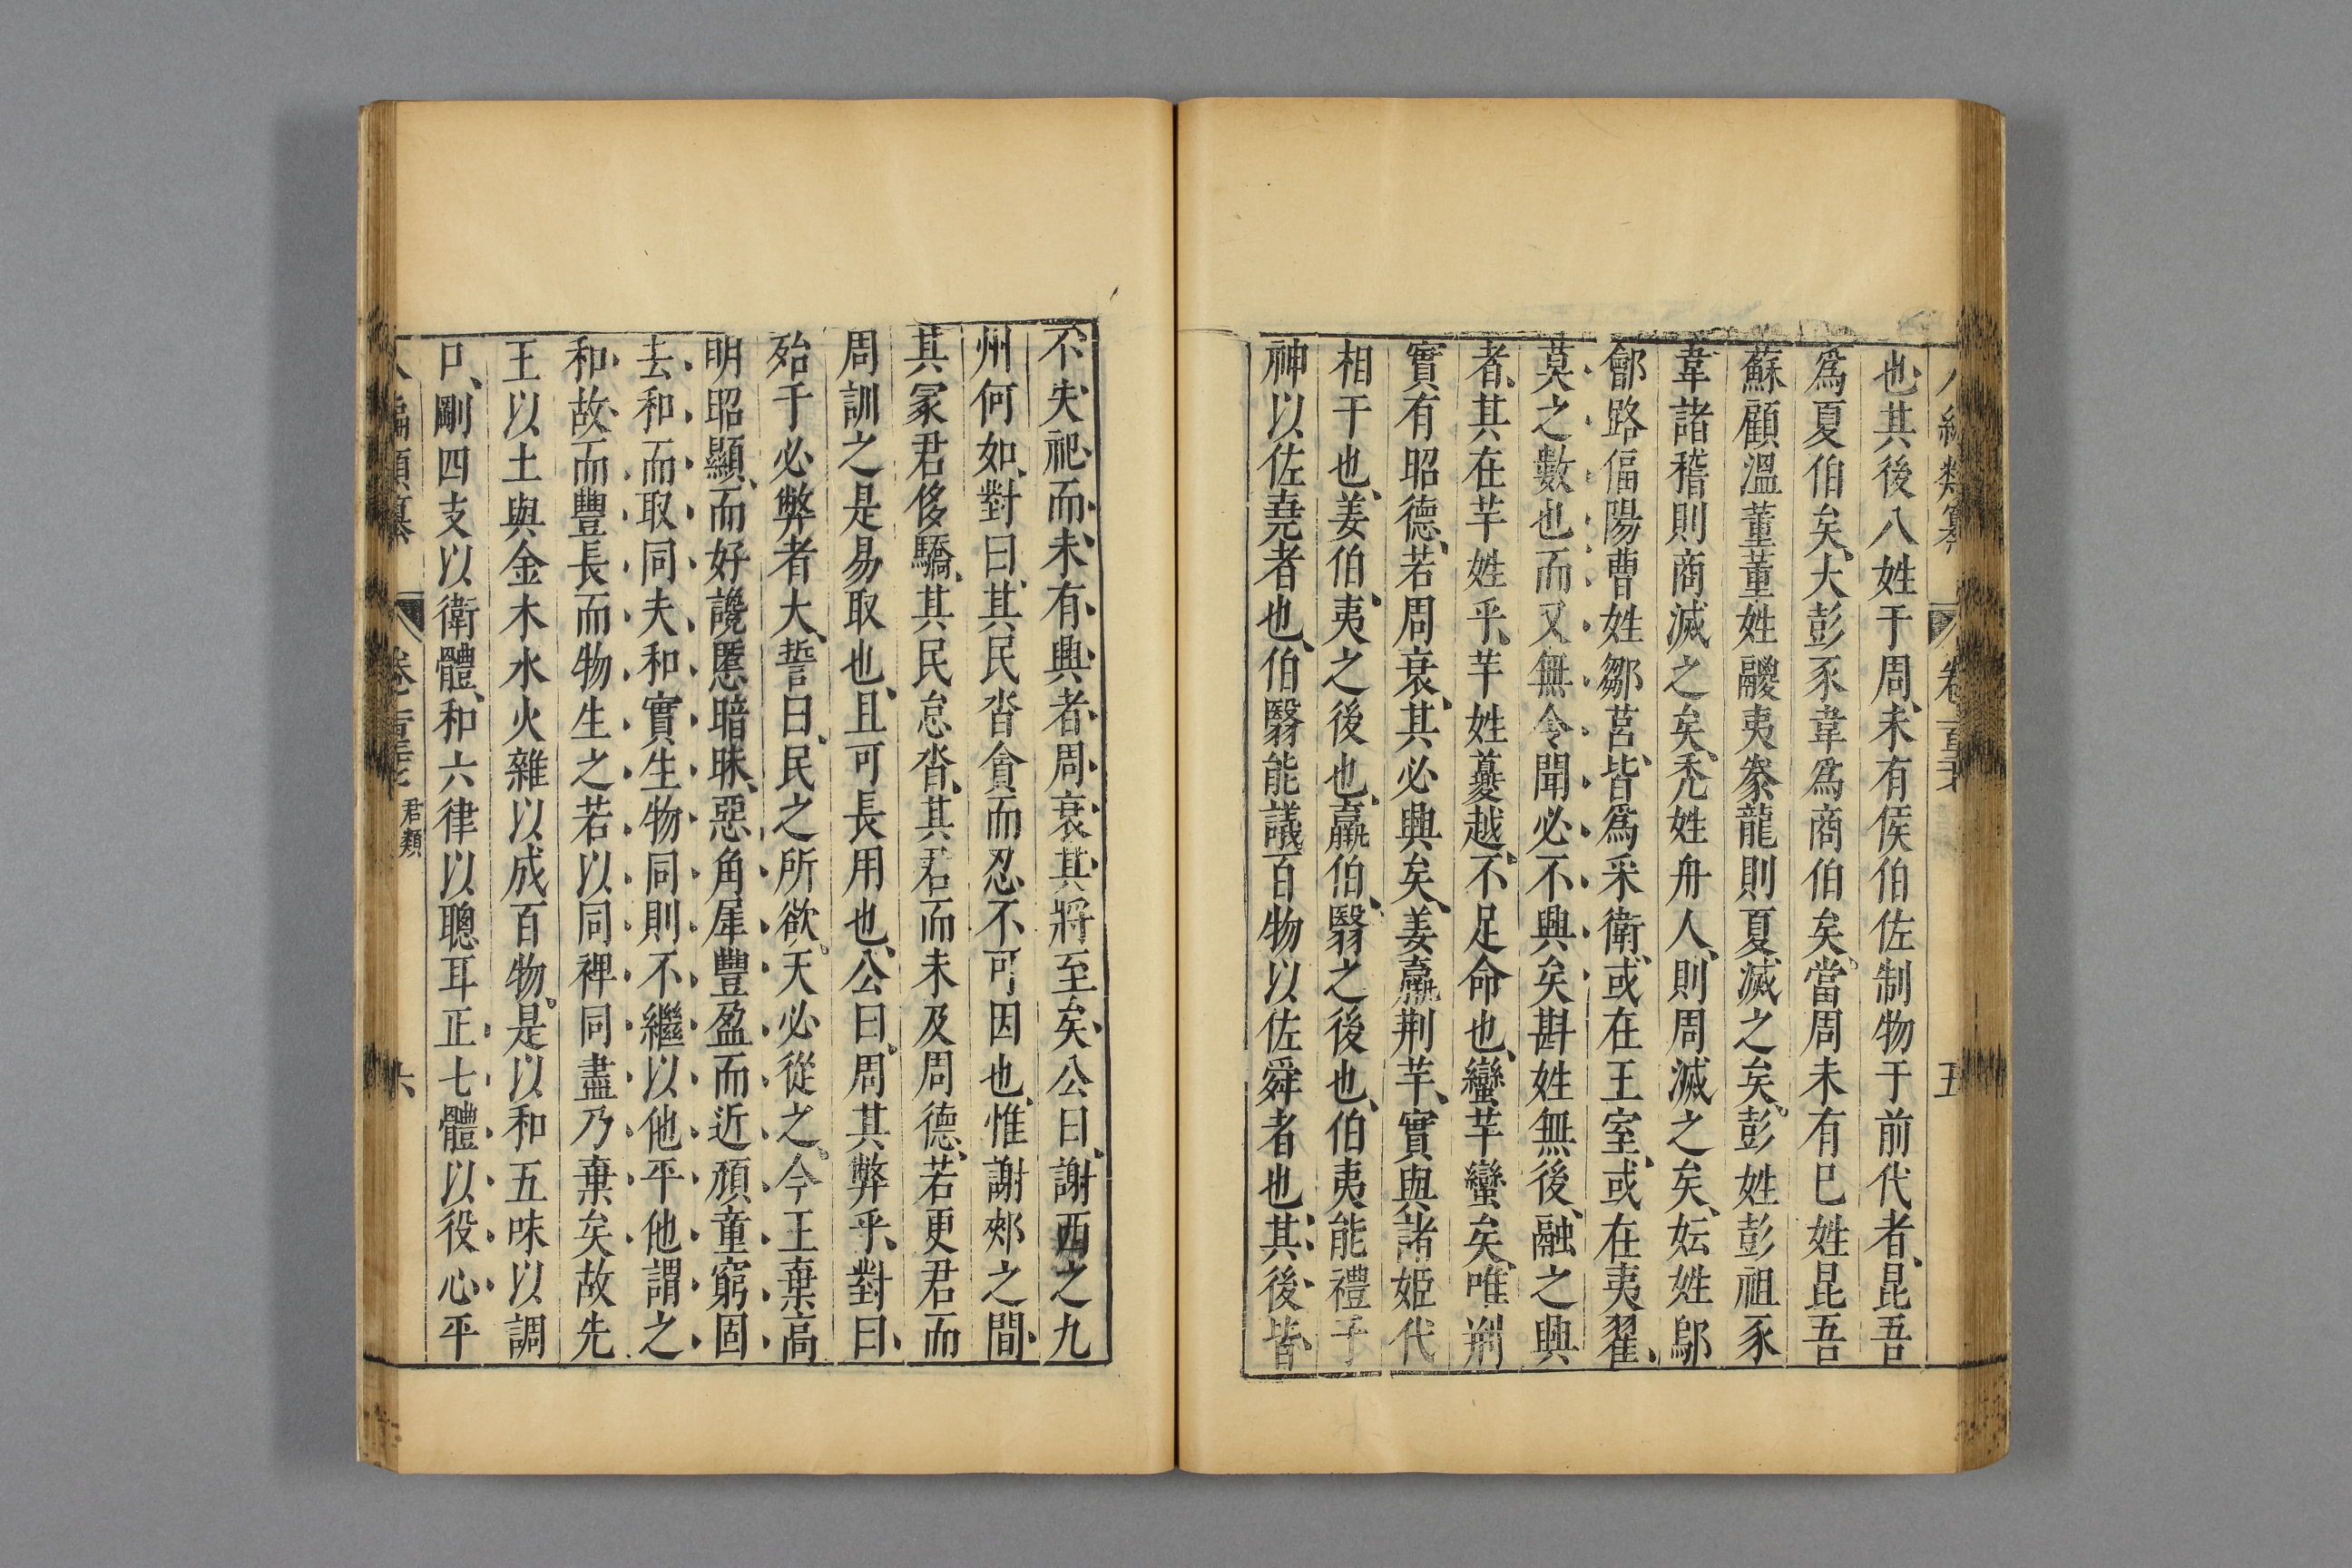 也其後八姓于周未有侯伯佐制物于前代者昆吾
爲夏伯矣大彭豕韋爲商伯矣當周未有巳姓昆吾
蘇顧溫董董姓鬷夷豢龍則夏滅之矣彭姓彭祖豕
韋諸稽則商滅之矣禿姓舟人則周滅之矣妘姓鄔
鄶路偪陽曹姓鄒莒皆爲采衛或在王室或在夷翟
莫之數也而又無令聞必不興矣斟姓無後融之興
者其在芉姓乎芉姓䕫越不足命也蠻芉蠻矣唯荆
實有昭德若周衰其必興矣姜嬴荆芉實與諸姬代
相干也姜伯夷之後也嬴伯翳之後也伯夷能禮于
神以佐堯者也伯翳能議百物以佐舜者也其後皆
不失祀而未有興者周衰其將至矣公曰謝西之九
州何如對曰其民沓貪而忍不可因也惟謝郟之間
其冢君侈驕其民怠沓其君而未及周德若更君而
周訓之是易取也且可長用也公曰周其弊乎對曰
殆于必弊者大誓曰民之所欲天必從之今王棄高
明昭顯而好讒慝暗昧惡角犀豐盈而近頑童窮固
去和而取同夫和實生物同則不繼以他平他謂之
和故而豐長而物生之若以同裨同盡乃棄矣故先
王以土與金木水火雜以成百物是以和五味以調
口剛四支以衛體和六律以聰耳正七體以役心平
編類纂 卷 君類 六